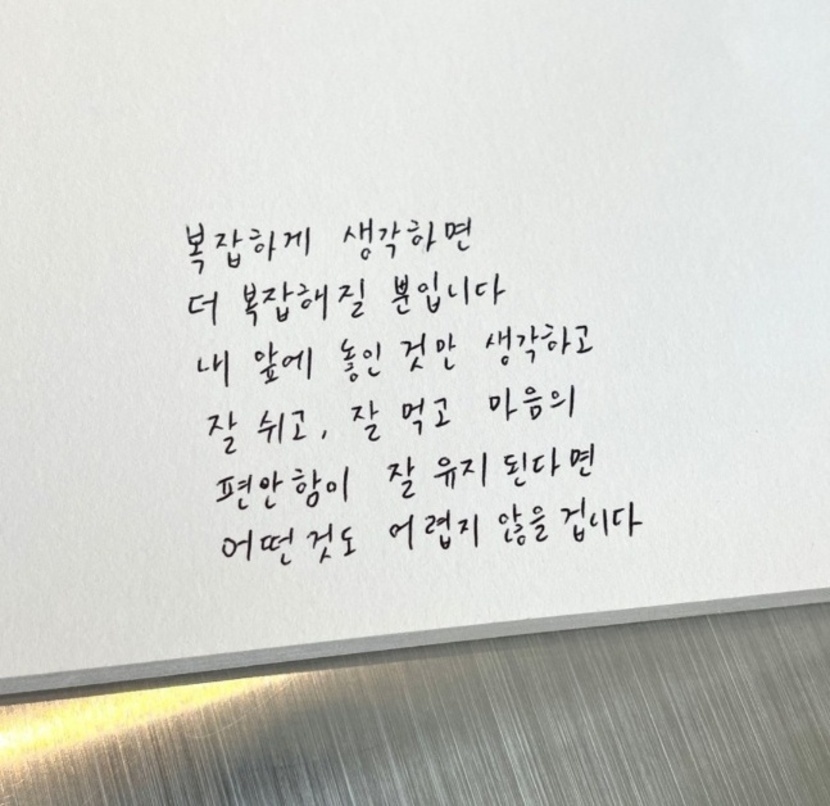 복잡하게 생각하면
더 복잡해질 뿐입니다
내 앞에 놓인 것만 생각하고
잘 쉬고, 잘 먹고 마음의
편안함이 잘 유지 된다면
어떤것도 어렵지 않을 겁니다